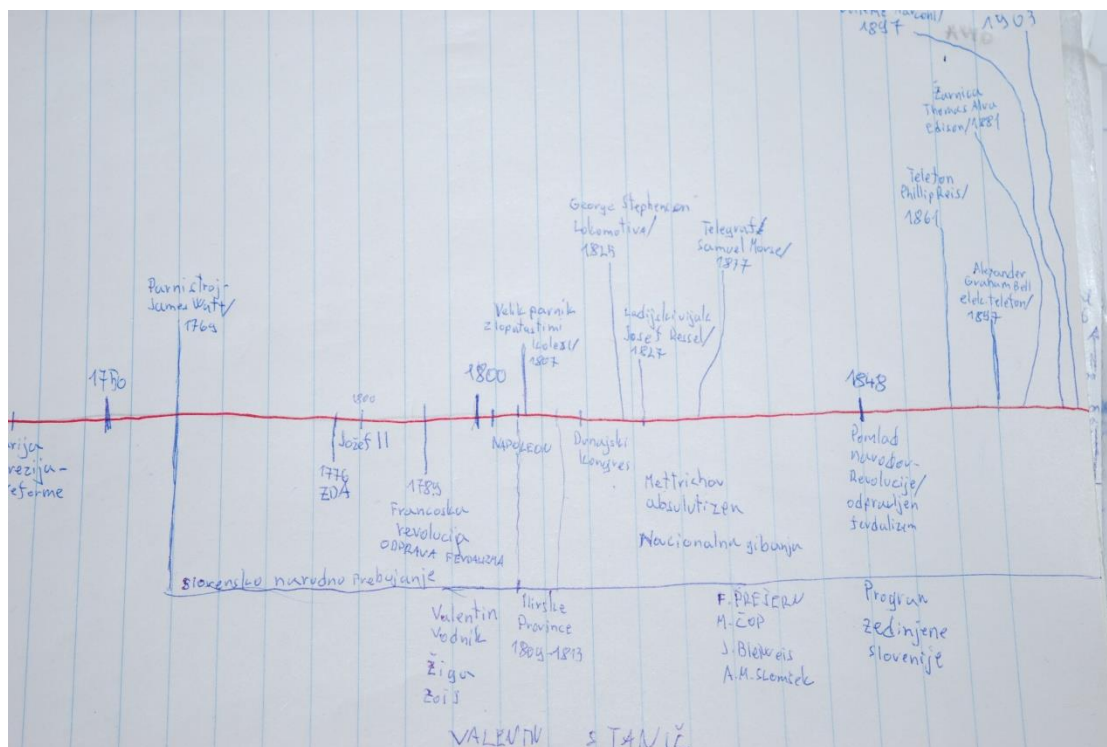 1897
1903
Žarnica
Thomas Alva
Edison/1881
Telefon
Phillip Reis/
1861
George Stephenson
Lokomotiva/
1825
Telegraf/
Samuel Morse/
1837
Alexander
Graham Bell
elek. telefon/
1897
Parni stroj-
James Watt/
1769
Velik parnik
z lopatastimi
kolesi/
1807
Ladijski vijak
Josef Ressel/
1827
1750
1800
1800
1848
arija
rezija-
eforme
Jožef II
1776
ZDA
1789
Francoska
revolucija
ODPRAVA FEVDALIZMA
NAPOLEON
Dunajski
kongres
Mettrichov
absulutizem
Nacionalna gibanja
Pomlad
narodov-
Revolucije/
odpravljen
fevdalizem
Slovensko narodno Prebujanje
Valentin
Vodnik
Žiga
Zois
Ilirske
Province
1809-1813
F. PREŠERN
M. ČOP
J. Bleiweis
A.M. Slomšek
Program
zedinjene
slovenije
VALENTIN STANIČ